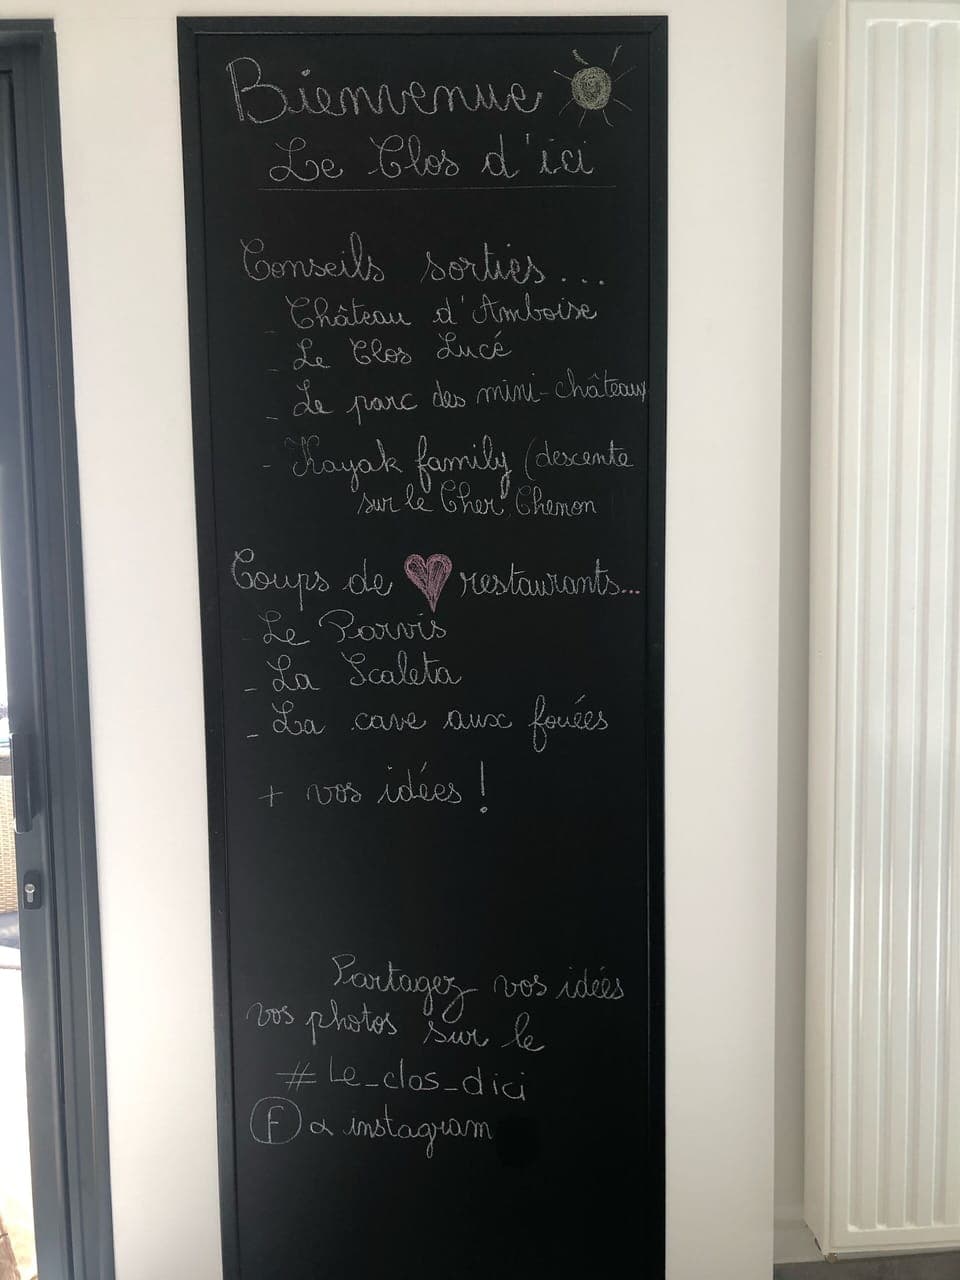 Bienvenue
Le Clos d'ici
Conseils sorties...
- Château d'Amboise
- Le Clos Lucé
- Le parc des mini-châteaux
- Kayak family (descente
sur le Cher, Chenon
Coups de ♥ restaurants...
- Le Parvis
- La Scaleta
- La cave aux fouées
+ vos idées !
Partagez vos idées
vos photos sur le
# Le_clos_dici
F & instagram